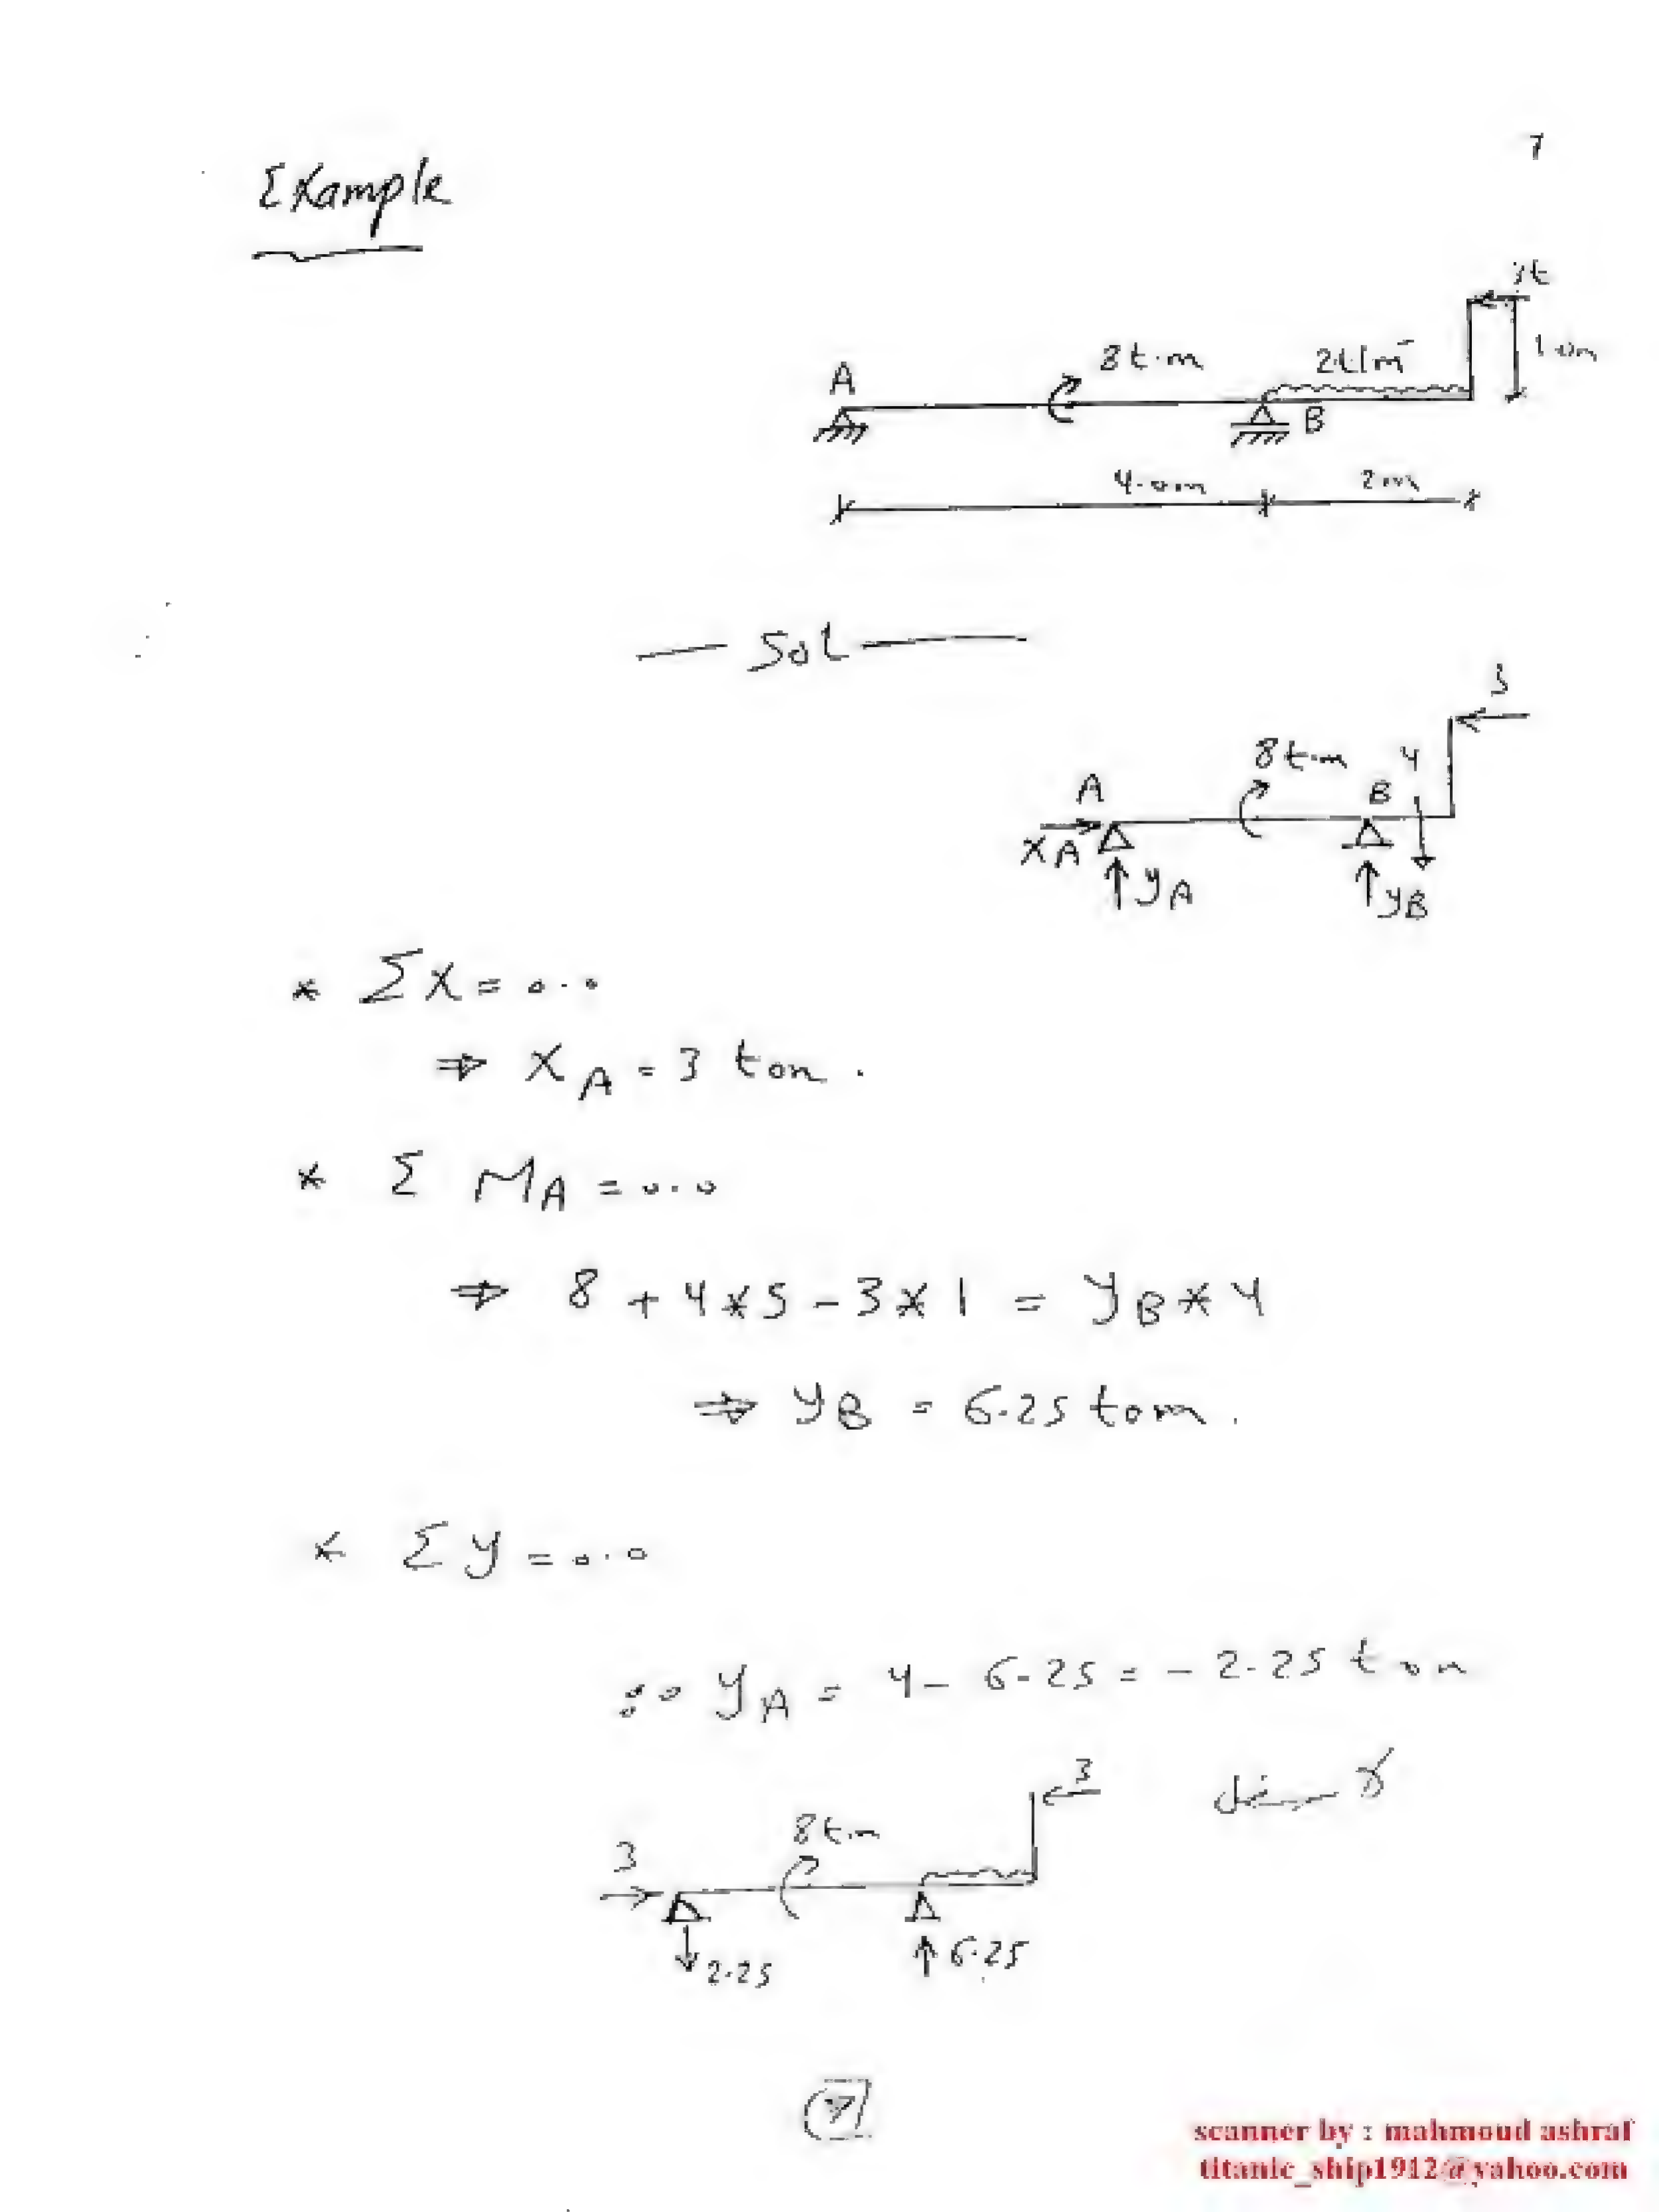 7
Example
3t
8t.m
2t/m'
1.0m
A
B
4.0m
2m
Sol
3
8t.m
4
A
B
XA
yA
yB
* ΣX = 0.0
⇒ XA = 3 ton.
* Σ MA = 0.0
⇒ 8 + 4*5 - 3*1 = yB*4
⇒ yB = 6.25 ton.
* Σy = 0.0
∴ yA = 4 - 6.25 = -2.25 ton
3
8t.m
3
2.25
6.25
7
scanner by : mahmoud ashraf
titanic_ship1912@yahoo.com